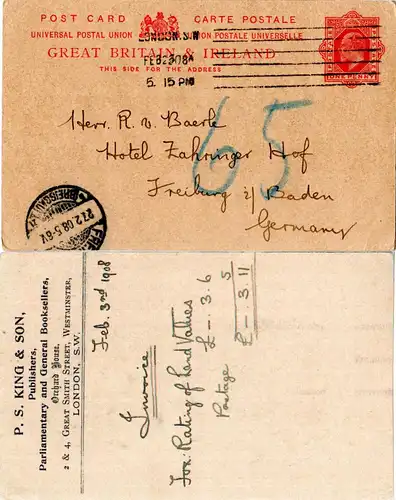 POST CARD CARTE POSTALE
UNIVERSAL POSTAL UNION UNION POSTALE UNIVERSELLE
GREAT BRITAIN & IRELAND
THIS SIDE FOR THE ADDRESS
ONE PENNY
LONDON.S.W
5. 15 PM
65
Herr. R. v. Baerle
Hotel Zahringer Hof
Freiburg i/ Baden
Germany
27.2.08.5-6
P. S. KING & SON,
Publishers,
Parliamentary and General Booksellers,
Orchard House,
2 & 4, GREAT SMITH STREET, WESTMINSTER,
LONDON, S.W.
Feb. 3rd 1908
Invoice
Fox: Rating of Land Values
£ -. 3. 6
Postage 5
£ -. 3. 11